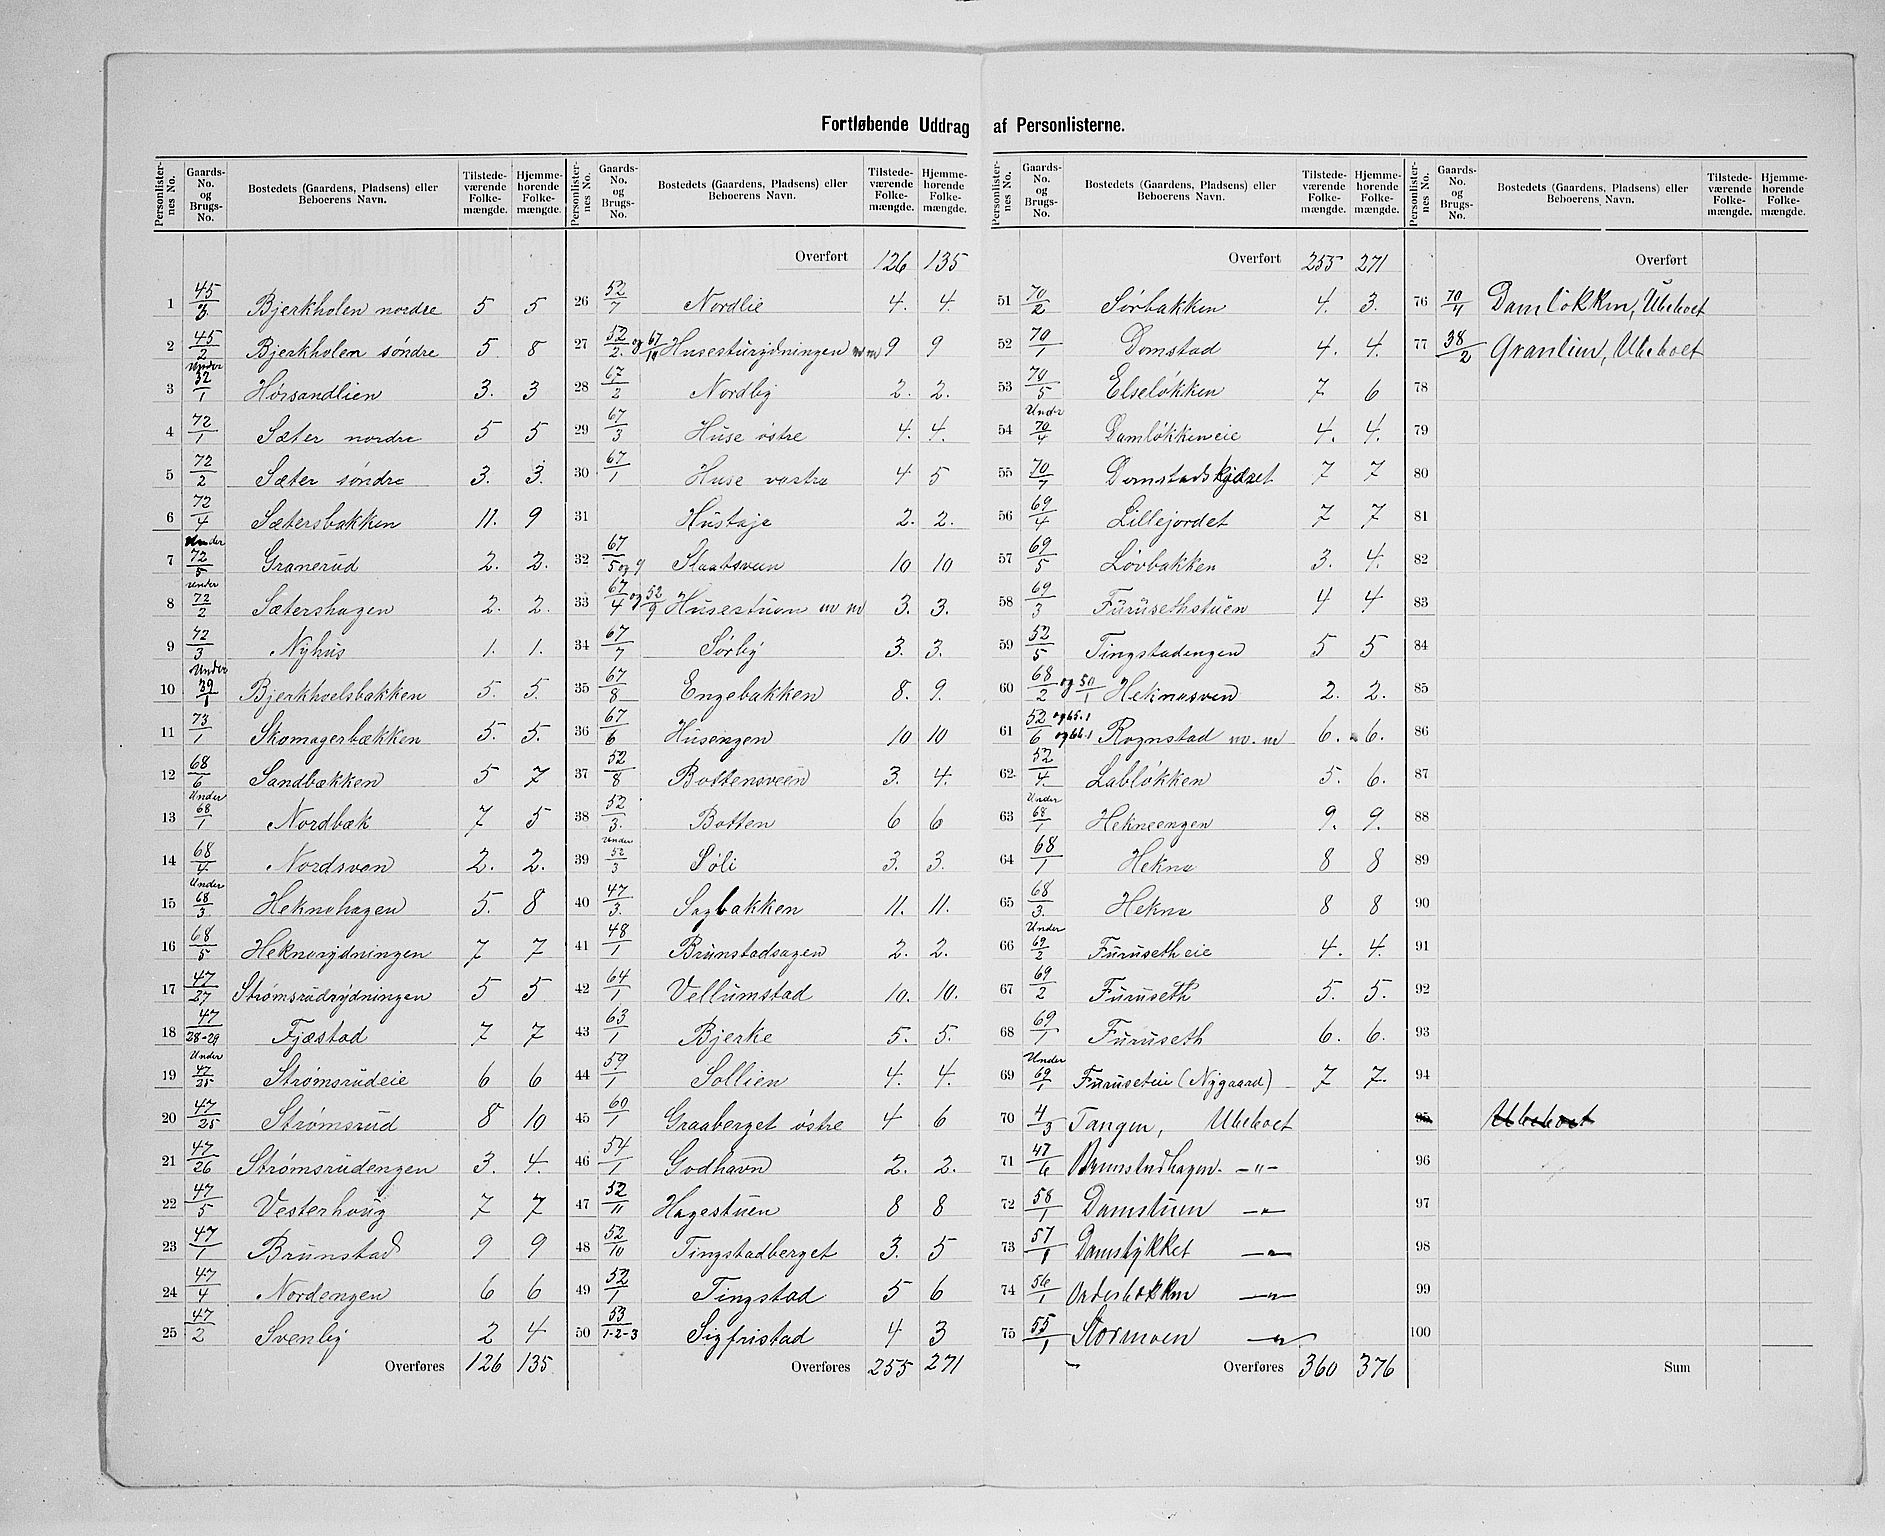 Fortløbende Uddrag af Personlisterne.
Personlisternes No. | Gaards-No. og Brugs-No. | Bostedets (Gaardens, Pladsens) eller Beboerens Navn. | Tilstedeværende Folkemængde. | Hjemmehørende Folkemængde.
1 45/3 Bjerkholen nordre 5 5
2 45/2 Bjerkholen søndre 5 8
3 Under 32/1 Hørsandlien 3. 3
4 72/1 Sæter nordre 5 5
5 72/2 Sæter søndre 3. 3.
6 72/4 Sætersbakken 11. 9
7 Under 72/5 Granerud 2. 2.
8 Under 72/2 Sætershagen 2. 2.
9 72/3 Nyhus 1. 1.
10 Under 39/1 Bjerkhoelsbakken 5. 5.
11 73/1 Skomagerbækken 5. 5.
12 68/6 Sandbækken 5 7
13 Under 68/1 Nordbæk 7 5
14 68/4. Nordsven 2. 2.
15 Under 68/3. Heknehagen 5. 8
16 68/5 Heknerydningen 7 7
17 47/27 Strømsrudrydningen 5 5
18 47/28-29 Fjæstad 7 7
19 Under 47/25 Strømsrudeie 6 6
20 47/25 Strømsrud 8 10
21 47/26 Strømsrudengen 3. 4.
22 47/5 Vesterhoug 7 7
23 47/1 Brunstad 9 9
24 47/4 Nordengen 6 6
25 47/2 Svenby 2 4
Overføres 126 135
Personlisternes No. | Gaards-No. og Brugs-No. | Bostedets (Gaardens, Pladsens) eller Beboerens Navn. | Tilstedeværende Folkemængde. | Hjemmehørende Folkemængde.
Overført 126 135
26 52/7 Nordlie 4. 4.
27 52/2. og 67/10 Husesturydningen m m 9 9
28 67/2 Nordby 2. 2.
29 67/3 Huse østre 4. 4.
30 67/1 Huse vestre 4 5
31 Hustaje 2. 2.
32 67/5 og 9 Slaatsveen 10 10
33 67/4 og 52/9 Husestuen m m 3. 3.
34 67/7 Sørby 3. 3.
35 67/8 Engebakken 8. 9.
36 67/6 Husengen 10 10
37 52/8 Bottensveen 3. 4.
38 52/3. Botten 6 6
39 Under 52/3 Søli 3. 3.
40 47/3. Sagbakken 11. 11.
41 48/1 Brunstadsagen 2. 2.
42 64/1 Vellumstad 10. 10.
43 63/1 Bjerke 5. 5.
44 59/1 Sollien 4. 4.
45 60/1 Graaberget østre 4 6
46 54/1 Godhavn 2. 2.
47 52/11 Hagestuen 8 8
48 52/10 Tingstadberget 3. 5
49 52/1 Tingstad 5 6
50 53/1-2-3 Sigfristad 4 3
Overføres 255 271
Personlisternes No. | Gaards-No. og Brugs-No. | Bostedets (Gaardens, Pladsens) eller Beboerens Navn. | Tilstedeværende Folkemængde. | Hjemmehørende Folkemængde.
Overført 255 271
51 70/2 Sørbakken 4. 3.
52 70/1 Domstad 4. 4.
53 70/5 Elseløkken 7 6
54 Under 70/4 Damløkkeneie 4. 4.
55 70/7 Domstadskjæret 7 7
56 69/4 Lillejordet 7 7
57 69/5 Løvbakken 3. 4.
58 69/3 Furusethstuen 4 4
59 52/5 Tingstadengen 5 5
60 68/2 og 50/1 Heknesven 2. 2.
61 52/6 og 65.1 og 66.1 Rognstad m. m 6. 6.
62. 52/4. Labløkken 5. 6.
63 Under 68/1 Hekneengen 9. 9.
64 68/1 Hekne 8 8
65 68/3. Hekne 8 8
66 Under 69/2 Furuseth eie 4. 4.
67 69/2 Furuseth 5. 5.
68 69/1 Furuseth 6. 6.
69 Under 69/1 Furuseteie (Nygaard) 7 7.
70 4/3 Tangen, Ubeboet
71 47/6 Brunstadhagen. -"-
72 58/1 Damstuen -"-
73 57/1 Damstykket -"-
74 56/1 -"-
75 55/1 Stormoen -"-
Overføres 360 376
Personlisternes No. | Gaards-No. og Brugs-No. | Bostedets (Gaardens, Pladsens) eller Beboerens Navn. | Tilstedeværende Folkemængde. | Hjemmehørende Folkemængde.
Overført
76 70/4 Damløkken, Ubeboet
77 38/2 Granlien, Ubeboet
78
79
80
81
82
83
84
85
86
87
88
89
90
91
92
93
94
95 Ubeboet
96
97
98
99
100
Sum